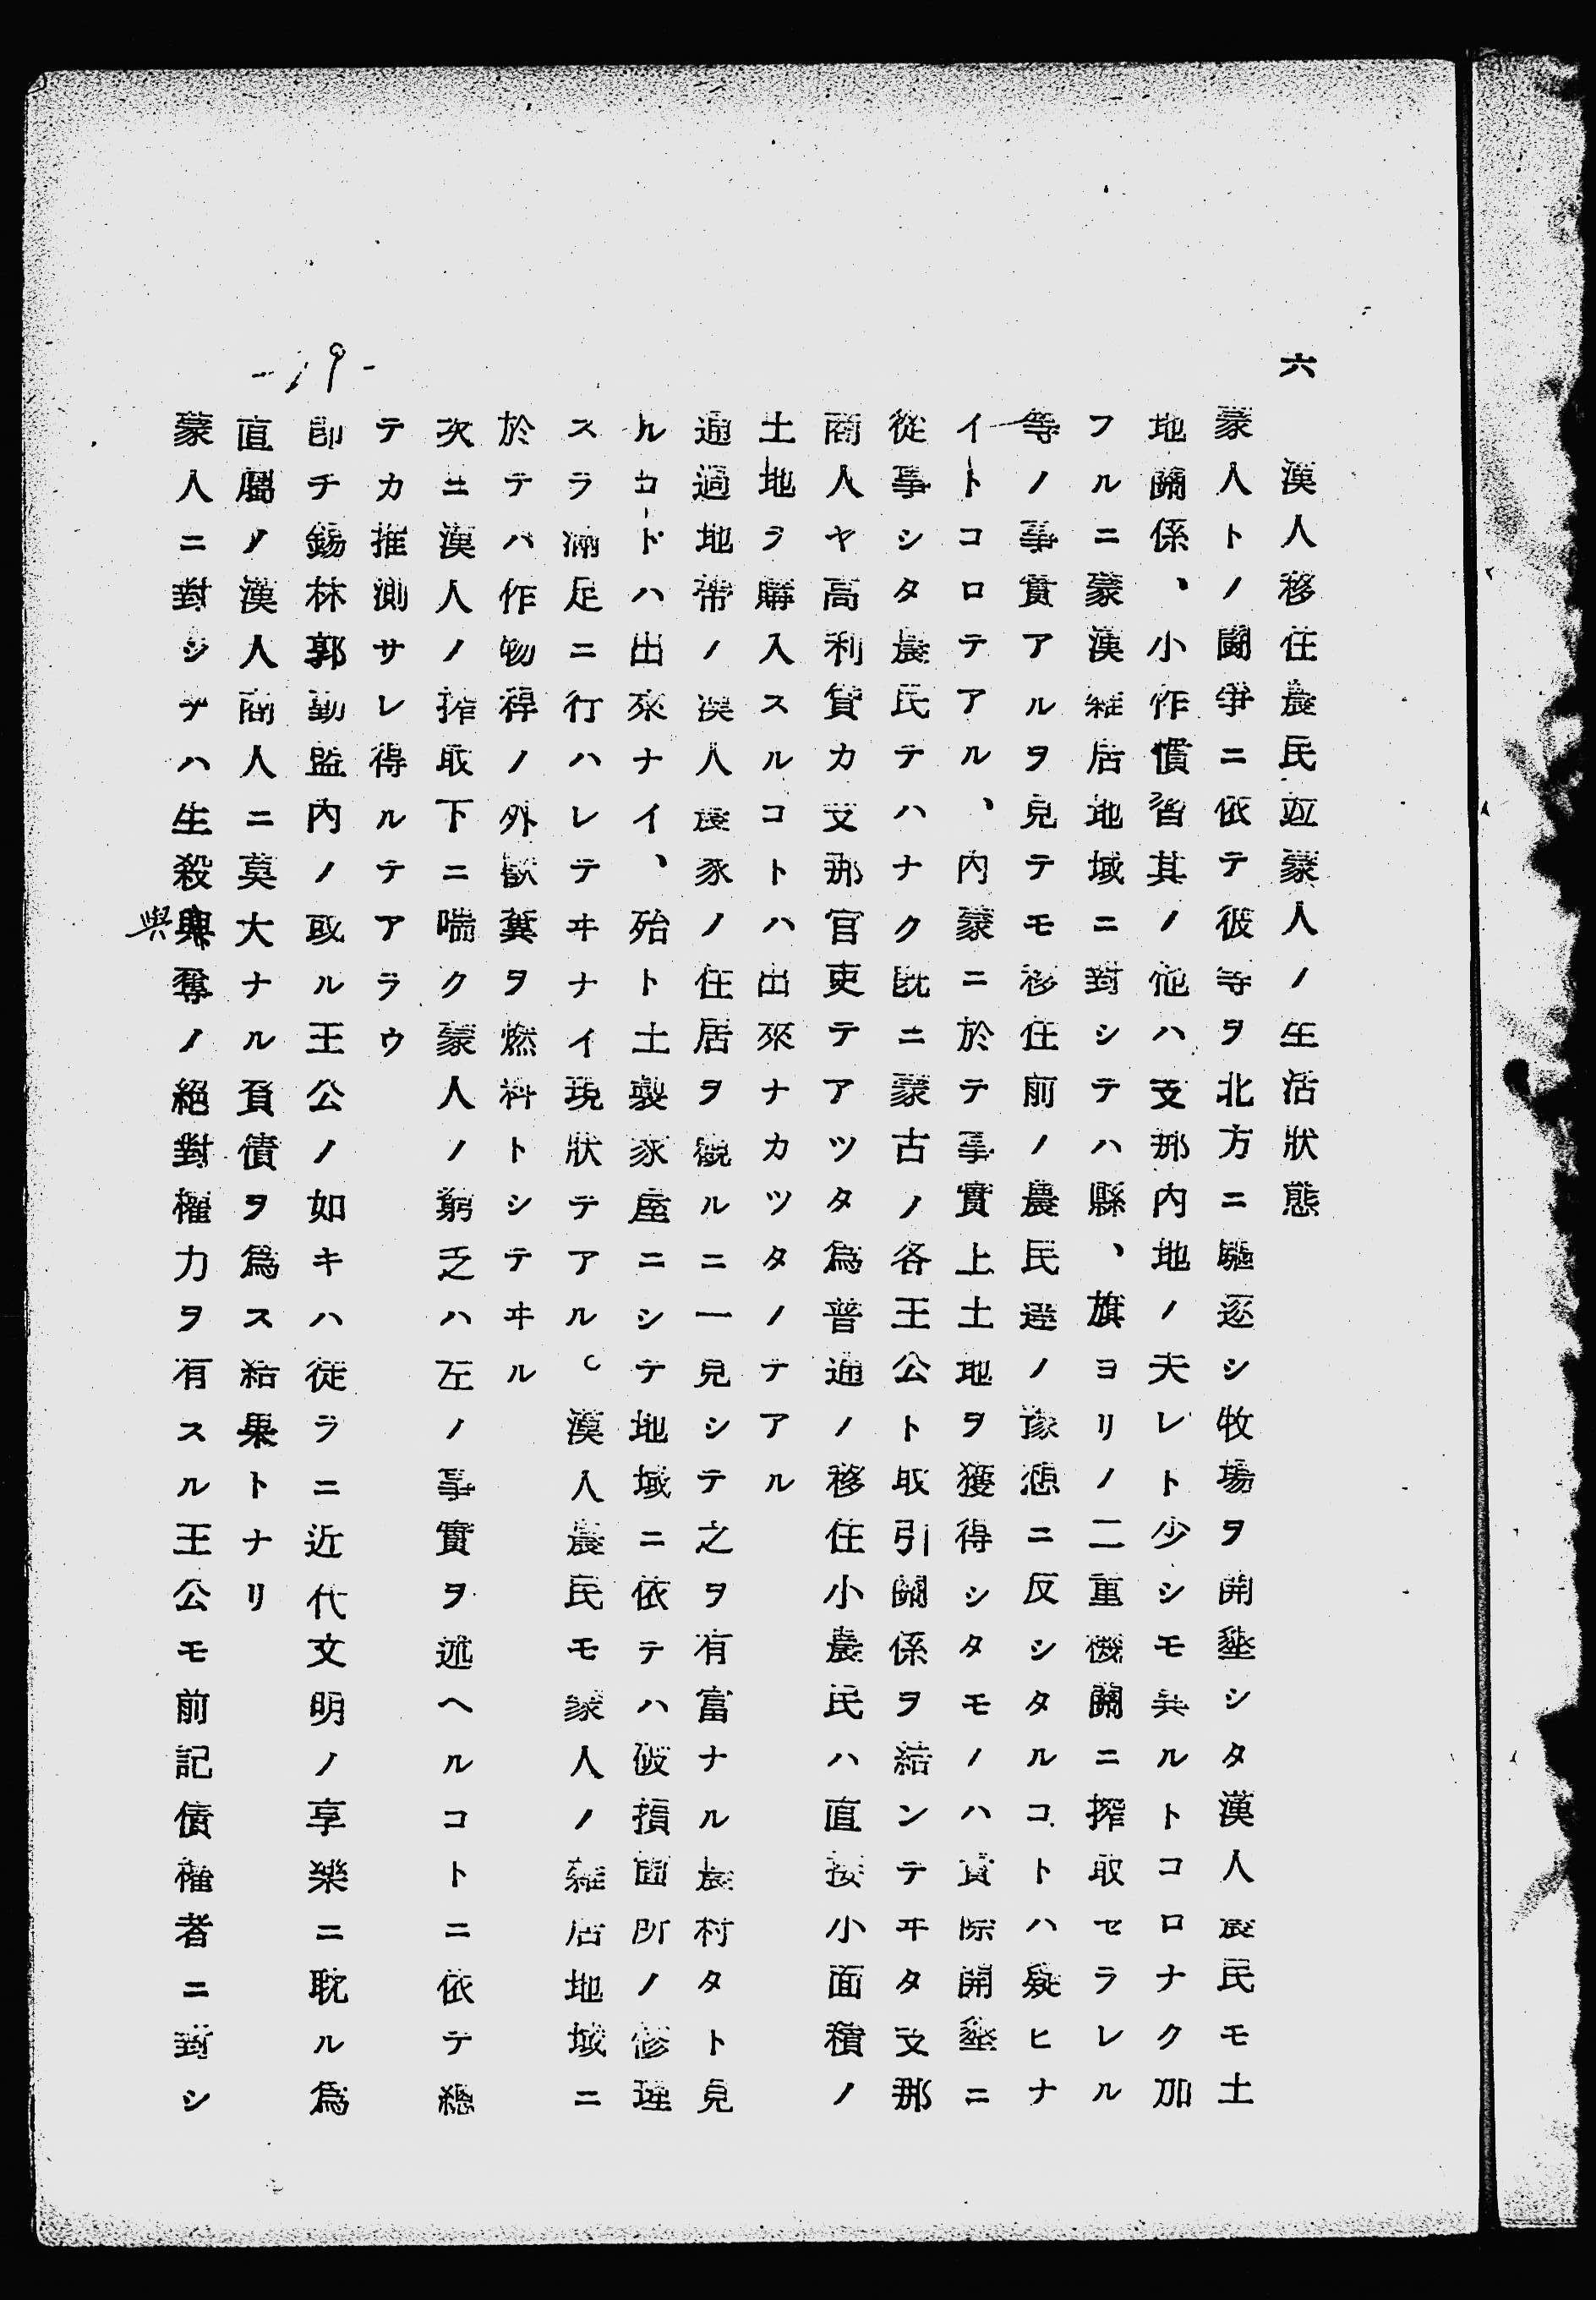 六　漢人移住農民竝蒙人ノ生活狀態
蒙人トノ鬪爭ニ依テ彼等ヲ北方ニ驅逐シ牧場ヲ開墾シタ漢人農民モ土
地關係、小作慣習其ノ他ハ支那内地ノ夫レト少シモ異ルトコロナク加
フルニ蒙漢雜居地域ニ對シテハ縣、旗ヨリノ二重機關ニ搾取セラレル
等ノ事實アルヲ見テモ移住前ノ農民達ノ豫想ニ反シタルコトハ疑ヒナ
イトコロテアル、内蒙ニ於テ事實上土地ヲ獲得シタモノハ實際開墾ニ
從事シタ農民テハナク既ニ蒙古ノ各王公ト取引關係ヲ結ンテヰタ支那
商人ヤ高利貸カ支那官吏テアツタ爲普通ノ移住小農民ハ直接小面積ノ
土地ヲ購入スルコトハ出來ナカツタノテアル
通過地帶ノ漢人農家ノ住居ヲ觀ルニ一見シテ之ヲ有富ナル農村タト見
ルコトハ出來ナイ、殆ト土製家屋ニシテ地域ニ依テハ破損箇所ノ修理
スラ滿足ニ行ハレテヰナイ現狀テアル。漢人農民モ蒙人ノ雜居地域ニ
於テハ作物稈ノ外獸糞ヲ燃料トシテヰル
次ニ漢人ノ搾取下ニ喘ク蒙人ノ窮乏ハ左ノ事實ヲ述ヘルコトニ依テ總
テカ推測サレ得ルテアラウ
卽チ錫林郭勒盟内ノ或ル王公ノ如キハ徒ラニ近代文明ノ享樂ニ耽ル爲
直屬ノ漢人商人ニ莫大ナル負債ヲ爲ス結果トナリ
蒙人ニ對シテハ生殺與奪ノ絕對權力ヲ有スル王公モ前記債權者ニ對シ
與
-19-